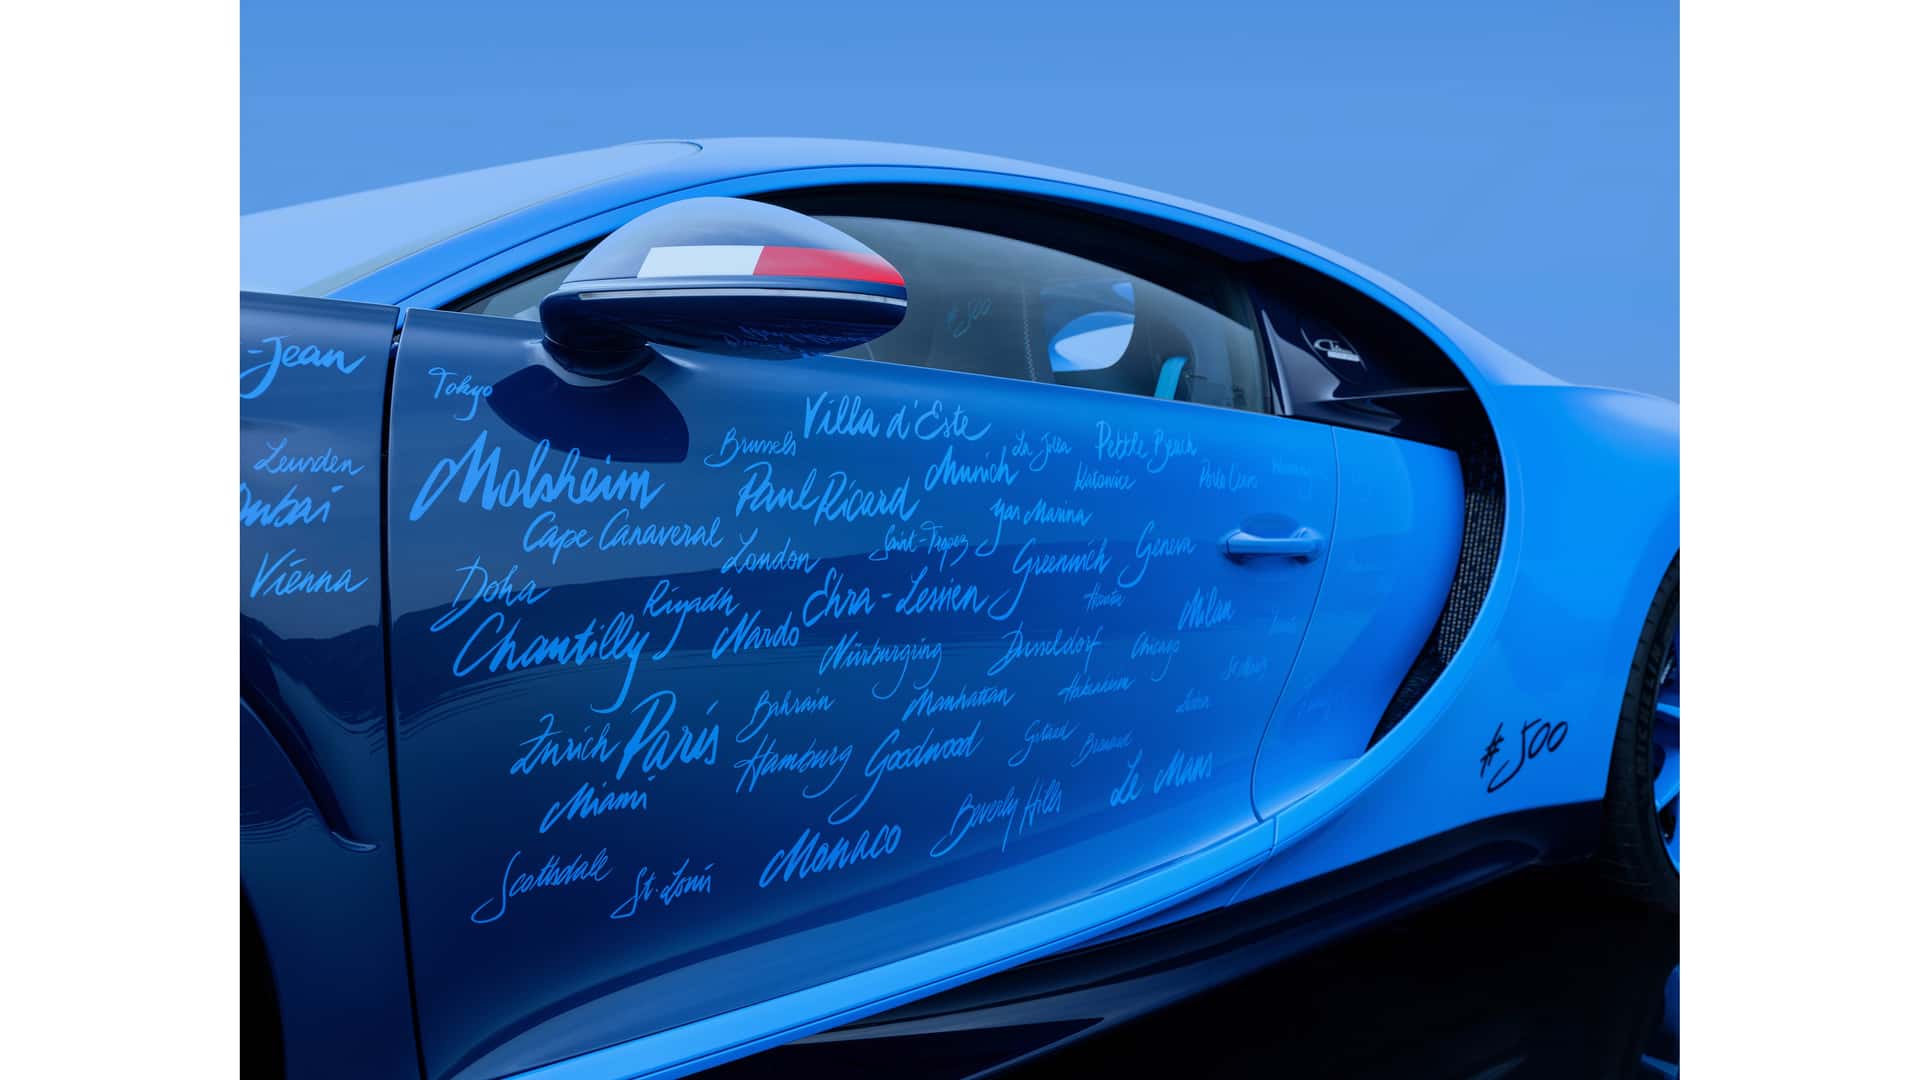 -Jean
Leuvden
Vienna
Tokyo
Molsheim
Brussels
Villa d'Este
Paul Ricard
Munich
La Jolla
Pebble Beach
Katowice
Porto Cervo
Cape Canaveral
London
Saint-Tropez
Yas Marina
Geneva
Greenwich
Doha
Riyadh
Ehra-Lessien
Houston
Milan
Chantilly
Nardo
Nürburgring
Dusseldorf
Chicago
Bahrain
Manhattan
Zurich
Paris
Hamburg
Goodwood
Gstaad
Miami
Monaco
Beverly Hills
Le Mans
Scottsdale
St. Louis
#500
#500